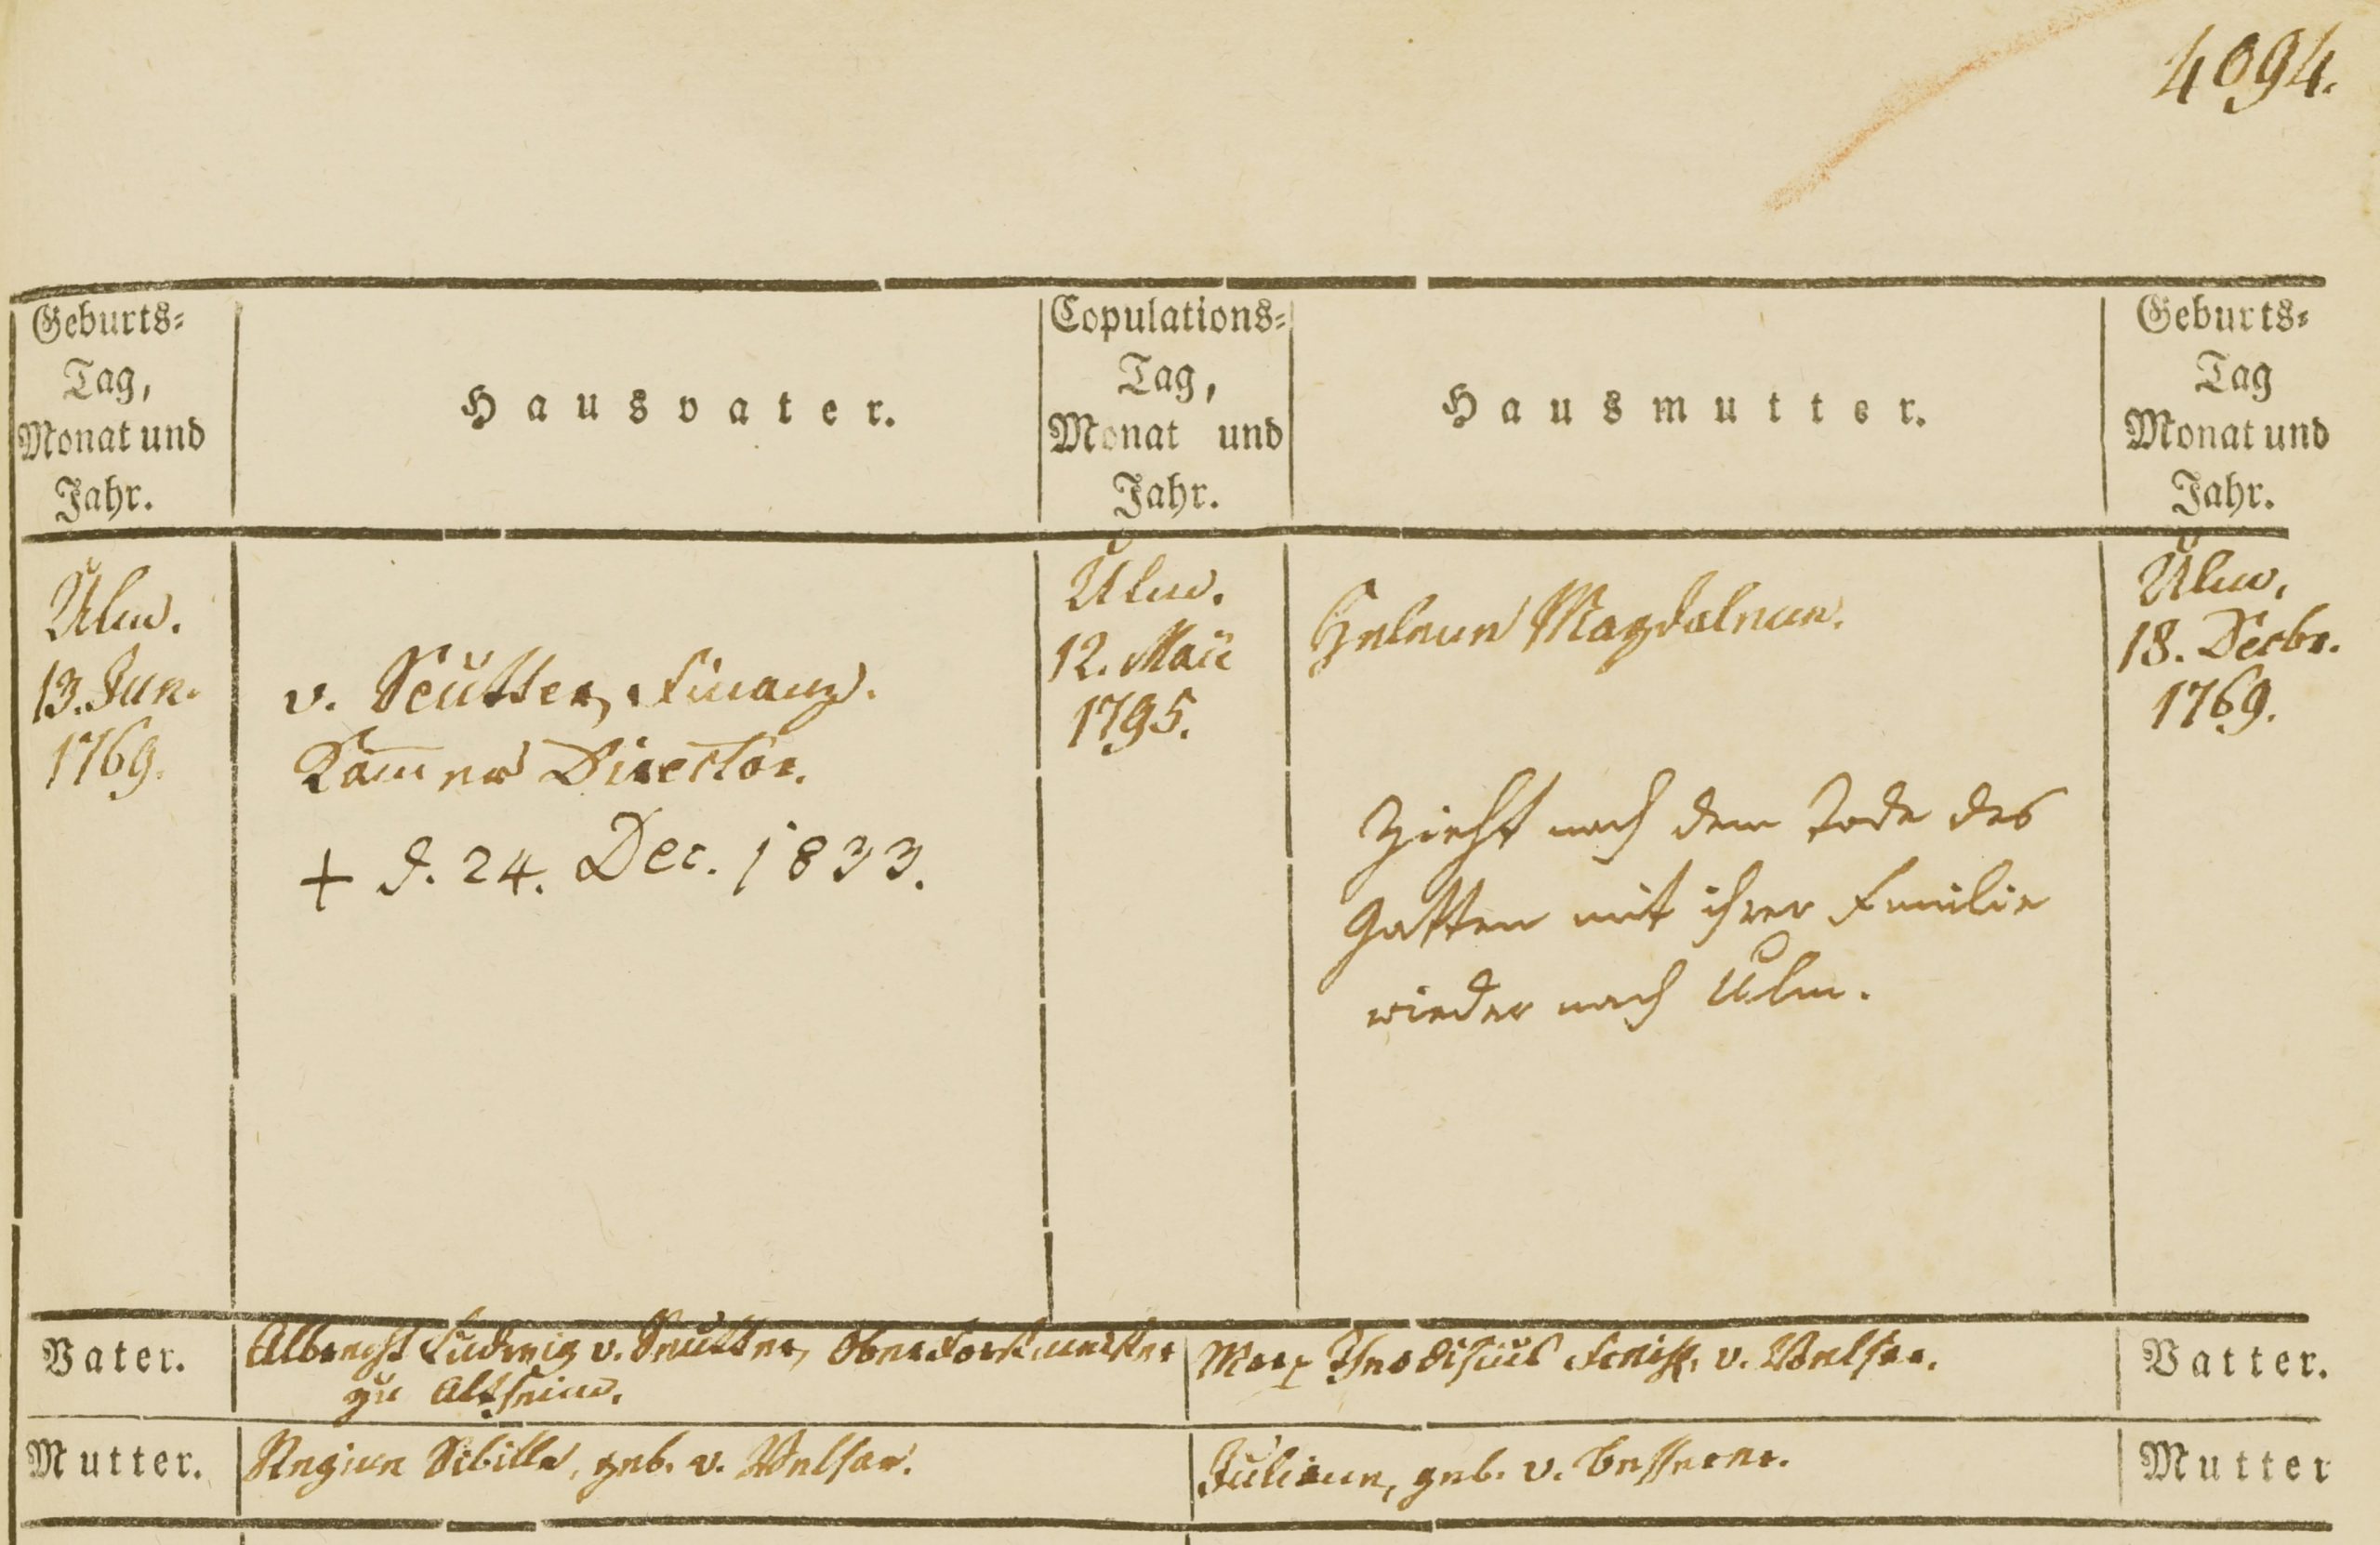 4094.
Geburts-
Tag,
Monat und
Jahr.
Hausvater.
Copulations-
Tag,
Monat und
Jahr.
Hausmutter.
Geburts-
Tag
Monat und
Jahr.
Ulm.
13. Jun.
1769.
v. Seutter, Finanz.
Kam̄er Director.
+ d. 24. Dec. 1833.
Ulm.
12. Maii
1795.
Helena Magdalena.
Zieht nach dem Tode des
Gatten mit ihrer Familie
wieder nach Ulm.
Ulm.
18. Decbr.
1769.
Vater.
Albrecht Ludwig v. Seutter, Oberforstmeister
zu Altheim.
Marx Theodosius v. Welser.
Vatter.
Mutter.
Regina Sibilla, geb. v. Welser.
Juliana, geb. v. Besserer.
Mutter